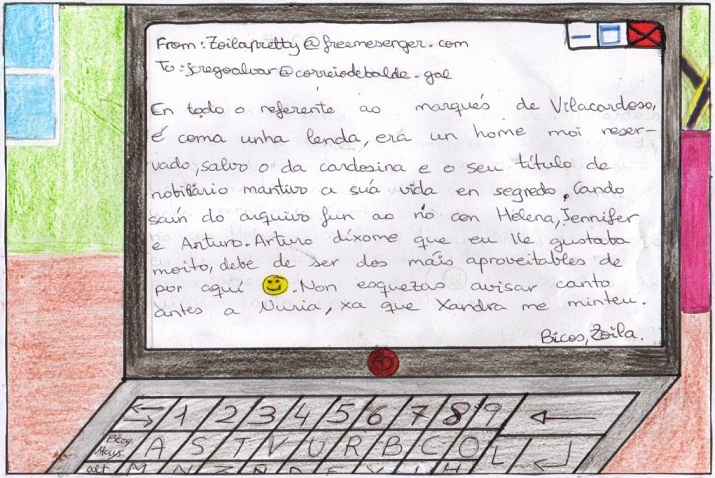 From: Zoilapretty@freemesenger.com
To: jcregoalvar@correiodebalde.gal
En todo o referente ao marqués de Vilacardoso,
é coma unha lenda, era un home moi reser-
vado, salvo o da cardosina e o seu título de
nobiliario mantivo a súa vida en segredo. Cando
saín do arquivo fun ao río con Helena, Jennifer
e Arturo. Arturo díxome que eu lle gustaba
moito, debe de ser dos máis aproveitables de
por aquí. Non esquezas avisar canto
antes a Nuria, xa que Xandra me minteu.
Bicos, Zoila.
1 2 3 4 5 6 7 8 9
Bloq. Mayus. A S T V U R B C O L
alt M N